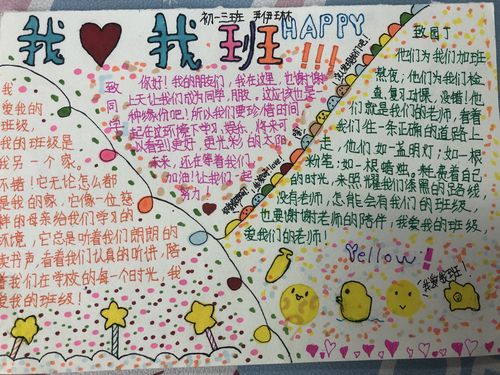 初一三班 尹伊琳
我❤我班
HAPPY
!!!
我
爱我的
班级,
我的班级是
我另一个家。
不错!它无论怎么都
是我的家,它像一位慈
祥的母亲给我们学习的
环境,它总是听着我们朗朗的
读书声,看着我们认真的听讲,陪
着我们在学校的每一个时光,我
爱我的班级!
致同学
你好!我的朋友们,我在这里,也谢谢
上天让我们成为同学,朋友,这应该也是一
种缘份吧!所以我们要珍惜时间
一起在这环境下学习,娱乐,将来可
以看到更好,更光彩的太阳
未来,还在等着我们。
加油!让我们一起
努力!
致园丁
他们为我们加班
熬夜,他们为我们检
查,复习功课,没错!他
们就是我们的老师,看着
我们在一条正确的道路上
走,他们如一盏明灯;如一根
粉笔;如一根蜡烛。耗费着自己
的时光,来照耀我们漆黑的路线
没有老师,怎能会有我们的班级,
也要谢谢老师的陪伴,我爱我的班级,
爱我们的老师!
Yellow!
我爱我班!